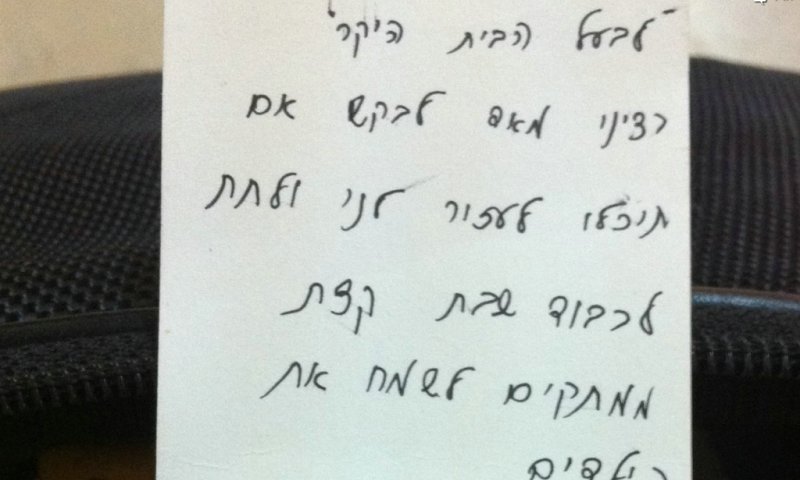 "לבעל הבית היקר"
רציני מאד לבקש אם
תוכלו לעזור לני ולתת
לכבוד שבת קצת
ממתקים לשמח את
הילדים